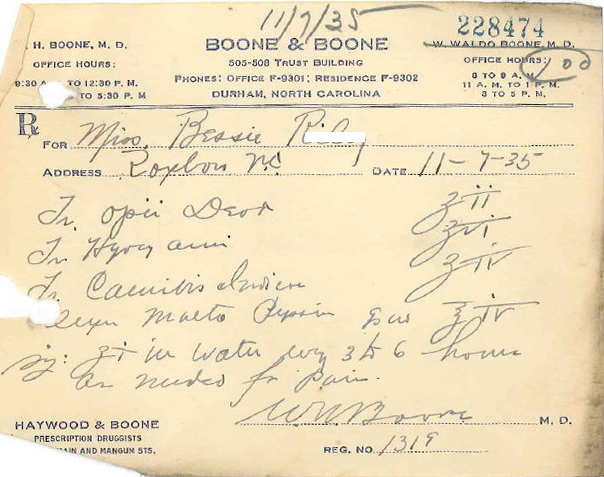 11/7/35
228474
H. BOONE, M. D.
BOONE & BOONE
W. WALDO BOONE, M. D.
OFFICE HOURS:
505-508 TRUST BUILDING
OFFICE HOURS:
9:30 A.M. TO 12:30 P. M.
PHONES: OFFICE F-9301; RESIDENCE F-9302
8 TO 9 A. M.
TO 5:30 P. M
DURHAM, NORTH CAROLINA
11 A. M. TO 1 P. M.
3 TO 5 P. M.
℞ FOR Miss. Bessie
ADDRESS Roxboro N.C. DATE 11-7-35
Tr. Opii Deod ʒii
Tr Hyoscyami ʒvi
Tr. Cannibis Indica ʒiv
Malto Pepsin ʒiv
Sig: ʒi in water every 3 to 6 hours
as needed for Pain.
W. W. Boone M. D.
HAYWOOD & BOONE
PRESCRIPTION DRUGGISTS
AIN AND MANGUM STS.
REG. NO. 1319